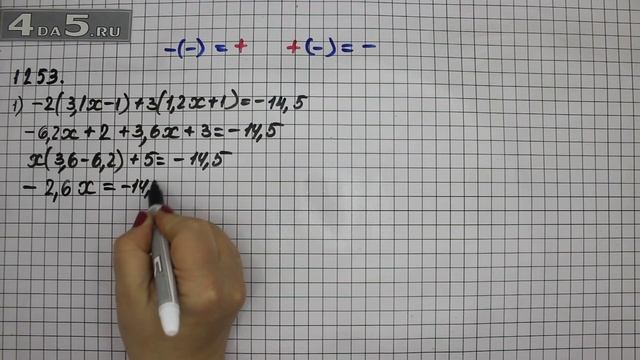 4DA5.RU
-(-) = + +(-) = -
1253.
1) -2(3,1x-1)+3(1,2x+1)=-14,5
-6,2x+2+3,6x+3=-14,5
x(3,6-6,2)+5=-14,5
-2,6x=-14,